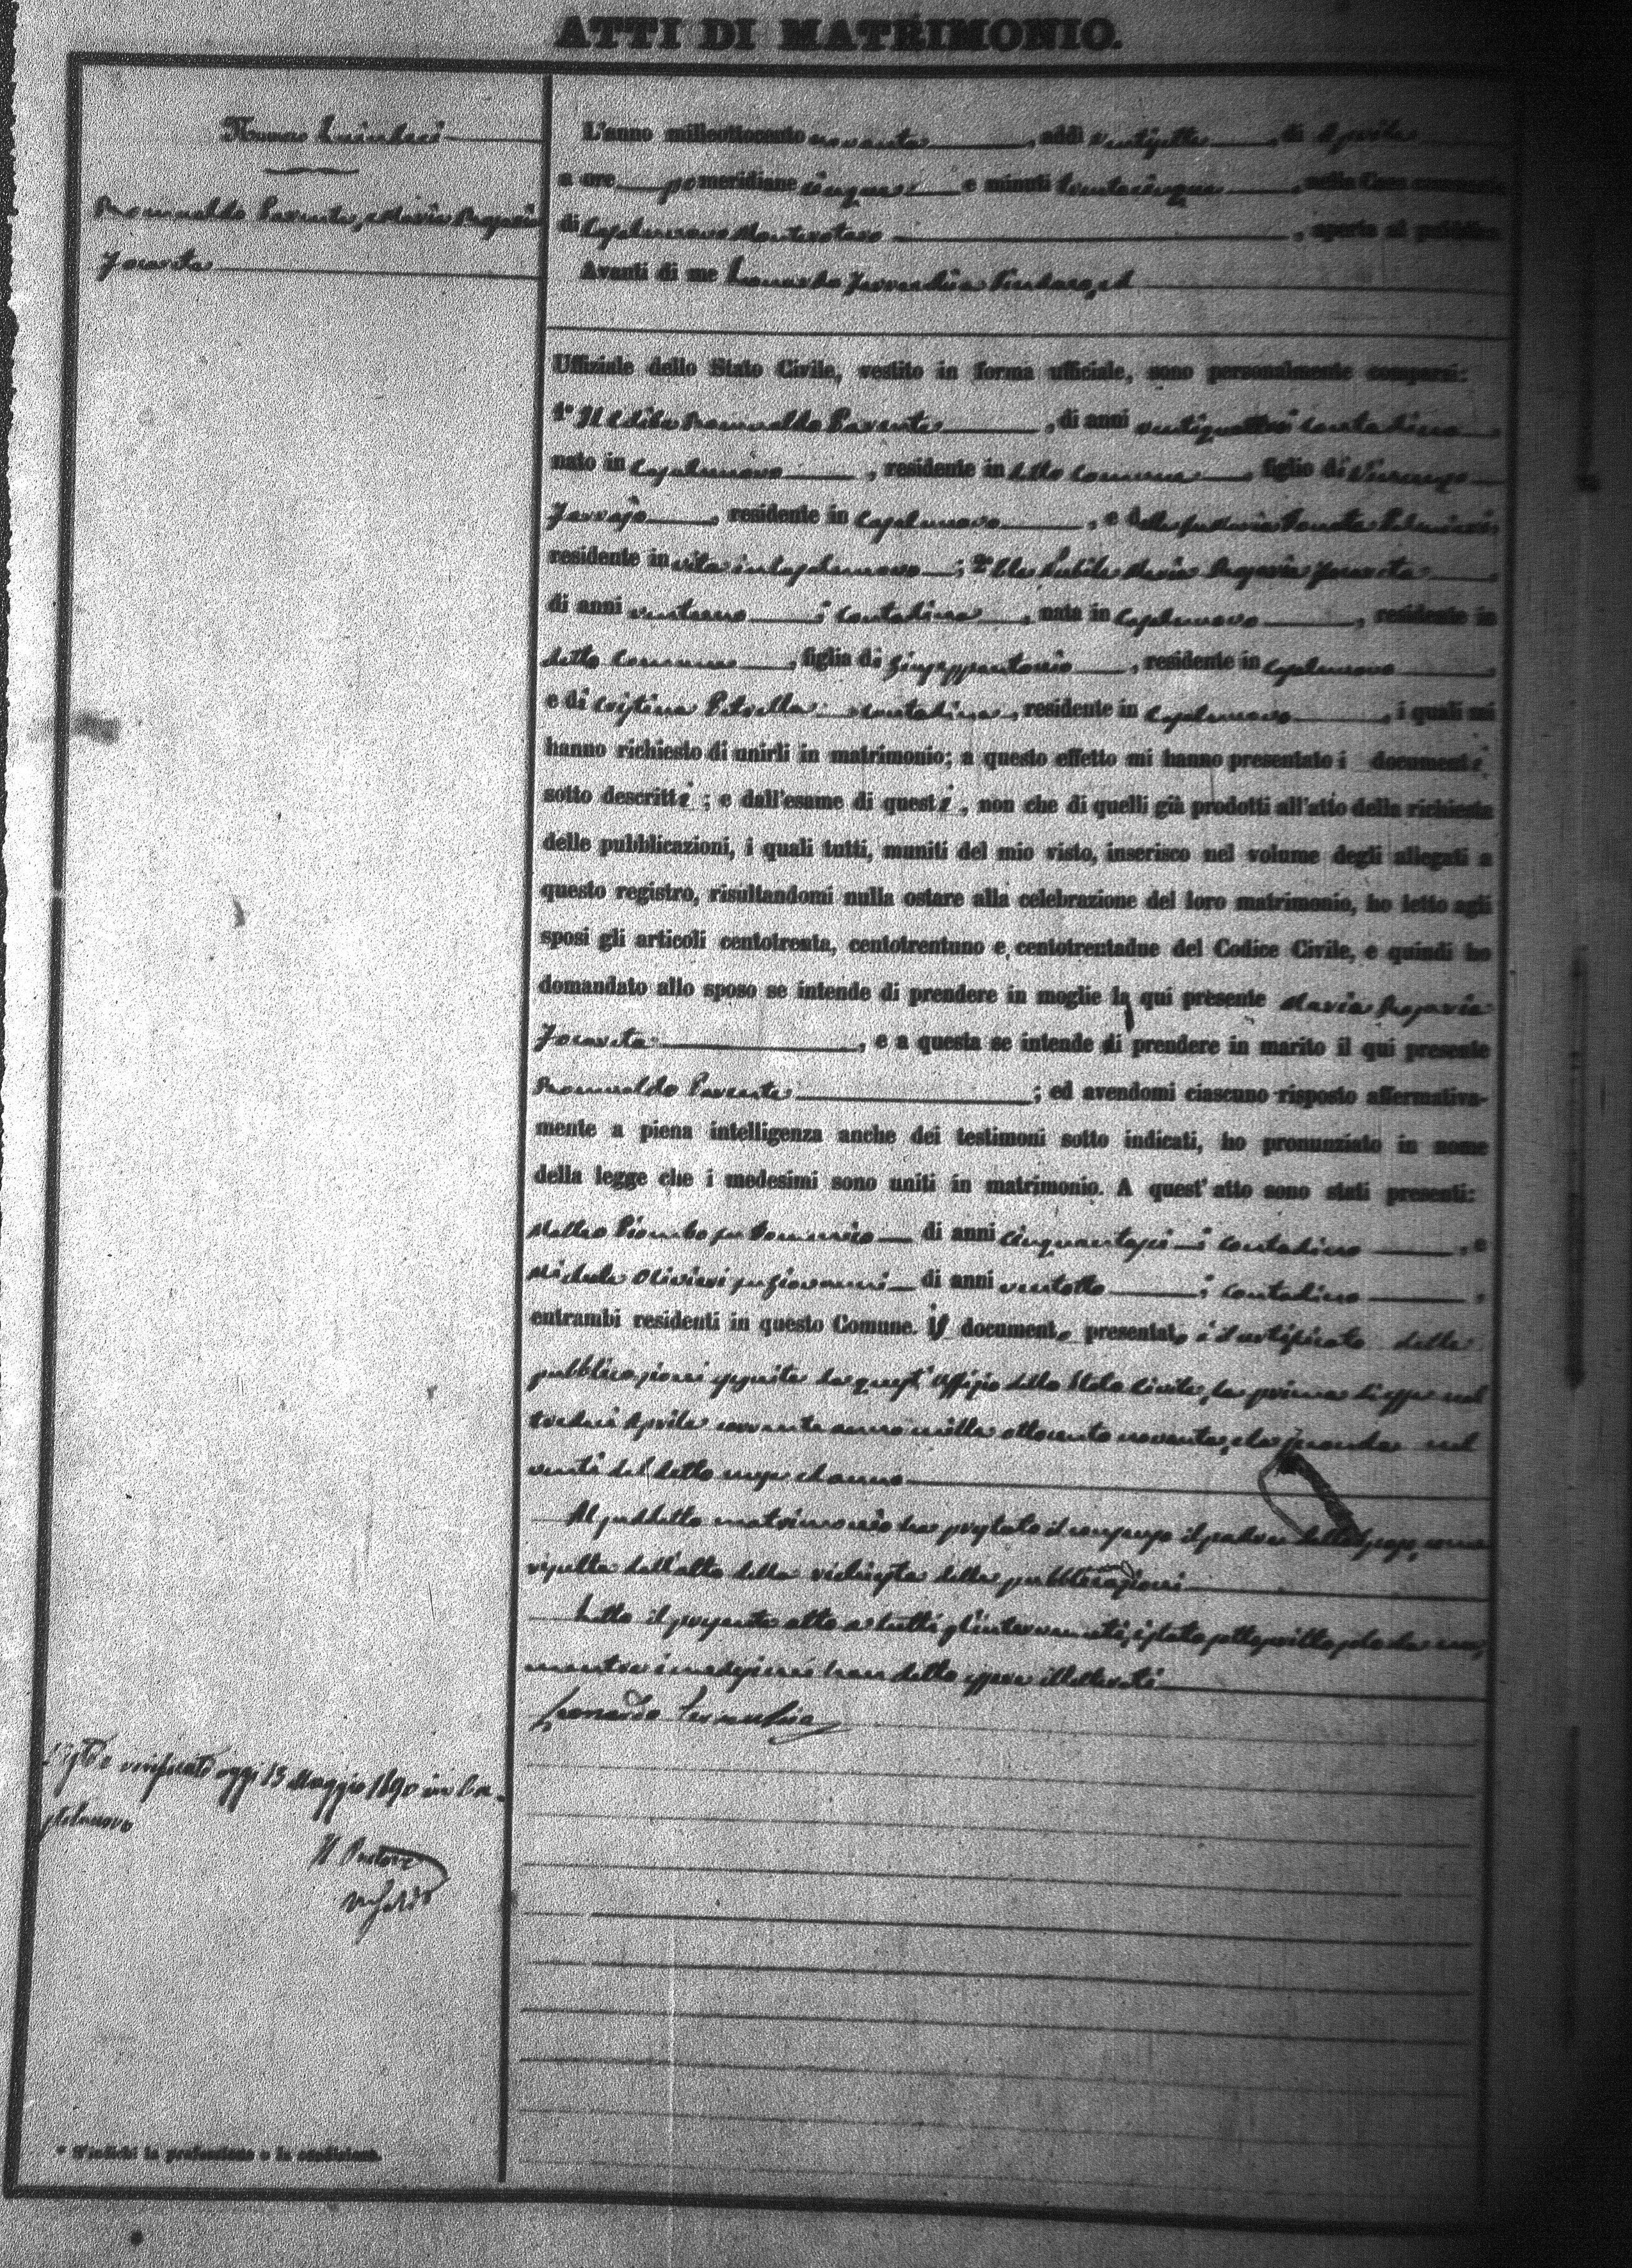 ATTI DI MATRIMONIO.
Numero Quindici
Romualdo Parente, e Maria Rosaria
Iocavita
L'anno milleottocento novanta, addì ventisette, di Aprile
a ore pomeridiane cinque e minuti trentacinque, nella Casa comunale
di Casalnuovo Monterotaro, aperta al pubblico.
Avanti di me Leonardo Sindaco, ed
Uffiziale dello Stato Civile, vestito in forma ufficiale, sono personalmente comparsi:
1° Il celibe Romualdo Parente, di anni ventiquattro contadino
nato in Casalnuovo, residente in detto Comune, figlio di Vincenzo
residente in Casalnuovo, e di Maria Donata
residente in vita in Casalnuovo; 2° La Nubile Maria Rosaria Iocavita
di anni ventuno; contadina, nata in Casalnuovo, residente in
detto Comune, figlia di Giuseppantonio, residente in Casalnuovo
e di Cristina Petrella contadina, residente in Casalnuovo, i quali mi
hanno richiesto di unirli in matrimonio; a questo effetto mi hanno presentato i documenti
sotto descritti; e dall'esame di questi, non che di quelli già prodotti all'atto della richiesta
delle pubblicazioni, i quali tutti, muniti del mio visto, inserisco nel volume degli allegati a
questo registro, risultandomi nulla ostare alla celebrazione del loro matrimonio, ho letto agli
sposi gli articoli centotrenta, centotrentuno e centotrentadue del Codice Civile, e quindi ho
domandato allo sposo se intende di prendere in moglie la qui presente Maria Rosaria
Iocavita, e a questa se intende di prendere in marito il qui presente
Romualdo Parente; ed avendomi ciascuno risposto affermativa-
mente a piena intelligenza anche dei testimoni sotto indicati, ho pronunziato in nome
della legge che i medesimi sono uniti in matrimonio. A quest'atto sono stati presenti:
Matteo Piombo fu Domenico di anni cinquantasei; contadino, e
Michele Olivieri fu Giovanni di anni ventotto; contadino,
entrambi residenti in questo Comune. Il documento presentato è il certificato delle
pubblicazioni eseguite da quest'Uffizio dello Stato Civile, la prima di esse nel
tredici Aprile corrente anno mille ottocento novanta, e la seconda nel
venti del detto mese ed anno
Al suddetto matrimonio ha prestato il consenso il padre dello sposo, come
risulta dall'atto della richiesta delle pubblicazioni
Letto il presente atto a tutti gl'intervenuti, è stato sottoscritto solo da me,
mentre i medesimi han detto essere illetterati
Leonardo
verificato oggi 13 Maggio 1890 in Ca-
salnuovo
Il Pretore
* S'indichi la professione o la condizione.